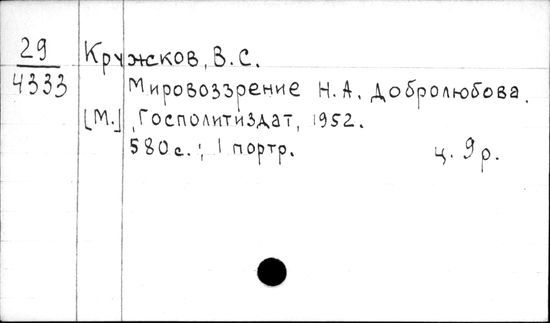 29
4333
Кружков, В.С.
Мировоззрение Н.А. Добролюбова.
[М.], Госполитиздат, 1952.
580с.; 1 портр. ц. 9р.